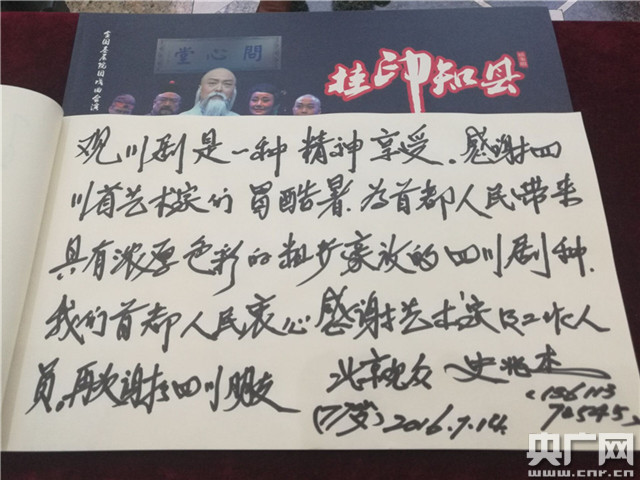 全国基层院团戏曲会演
問心堂
挂帅知县
观川剧是一种精神享受。感谢四
川省艺术家们冒酷暑、为首都人民带来
具有浓厚色彩的粗犷豪放的四川剧种.
我们首都人民衷心感谢艺术家及工作人
员。再次谢谢四川朋友
北京观众
(77岁) 2016.7.14.
央广网
www.cnr.cn